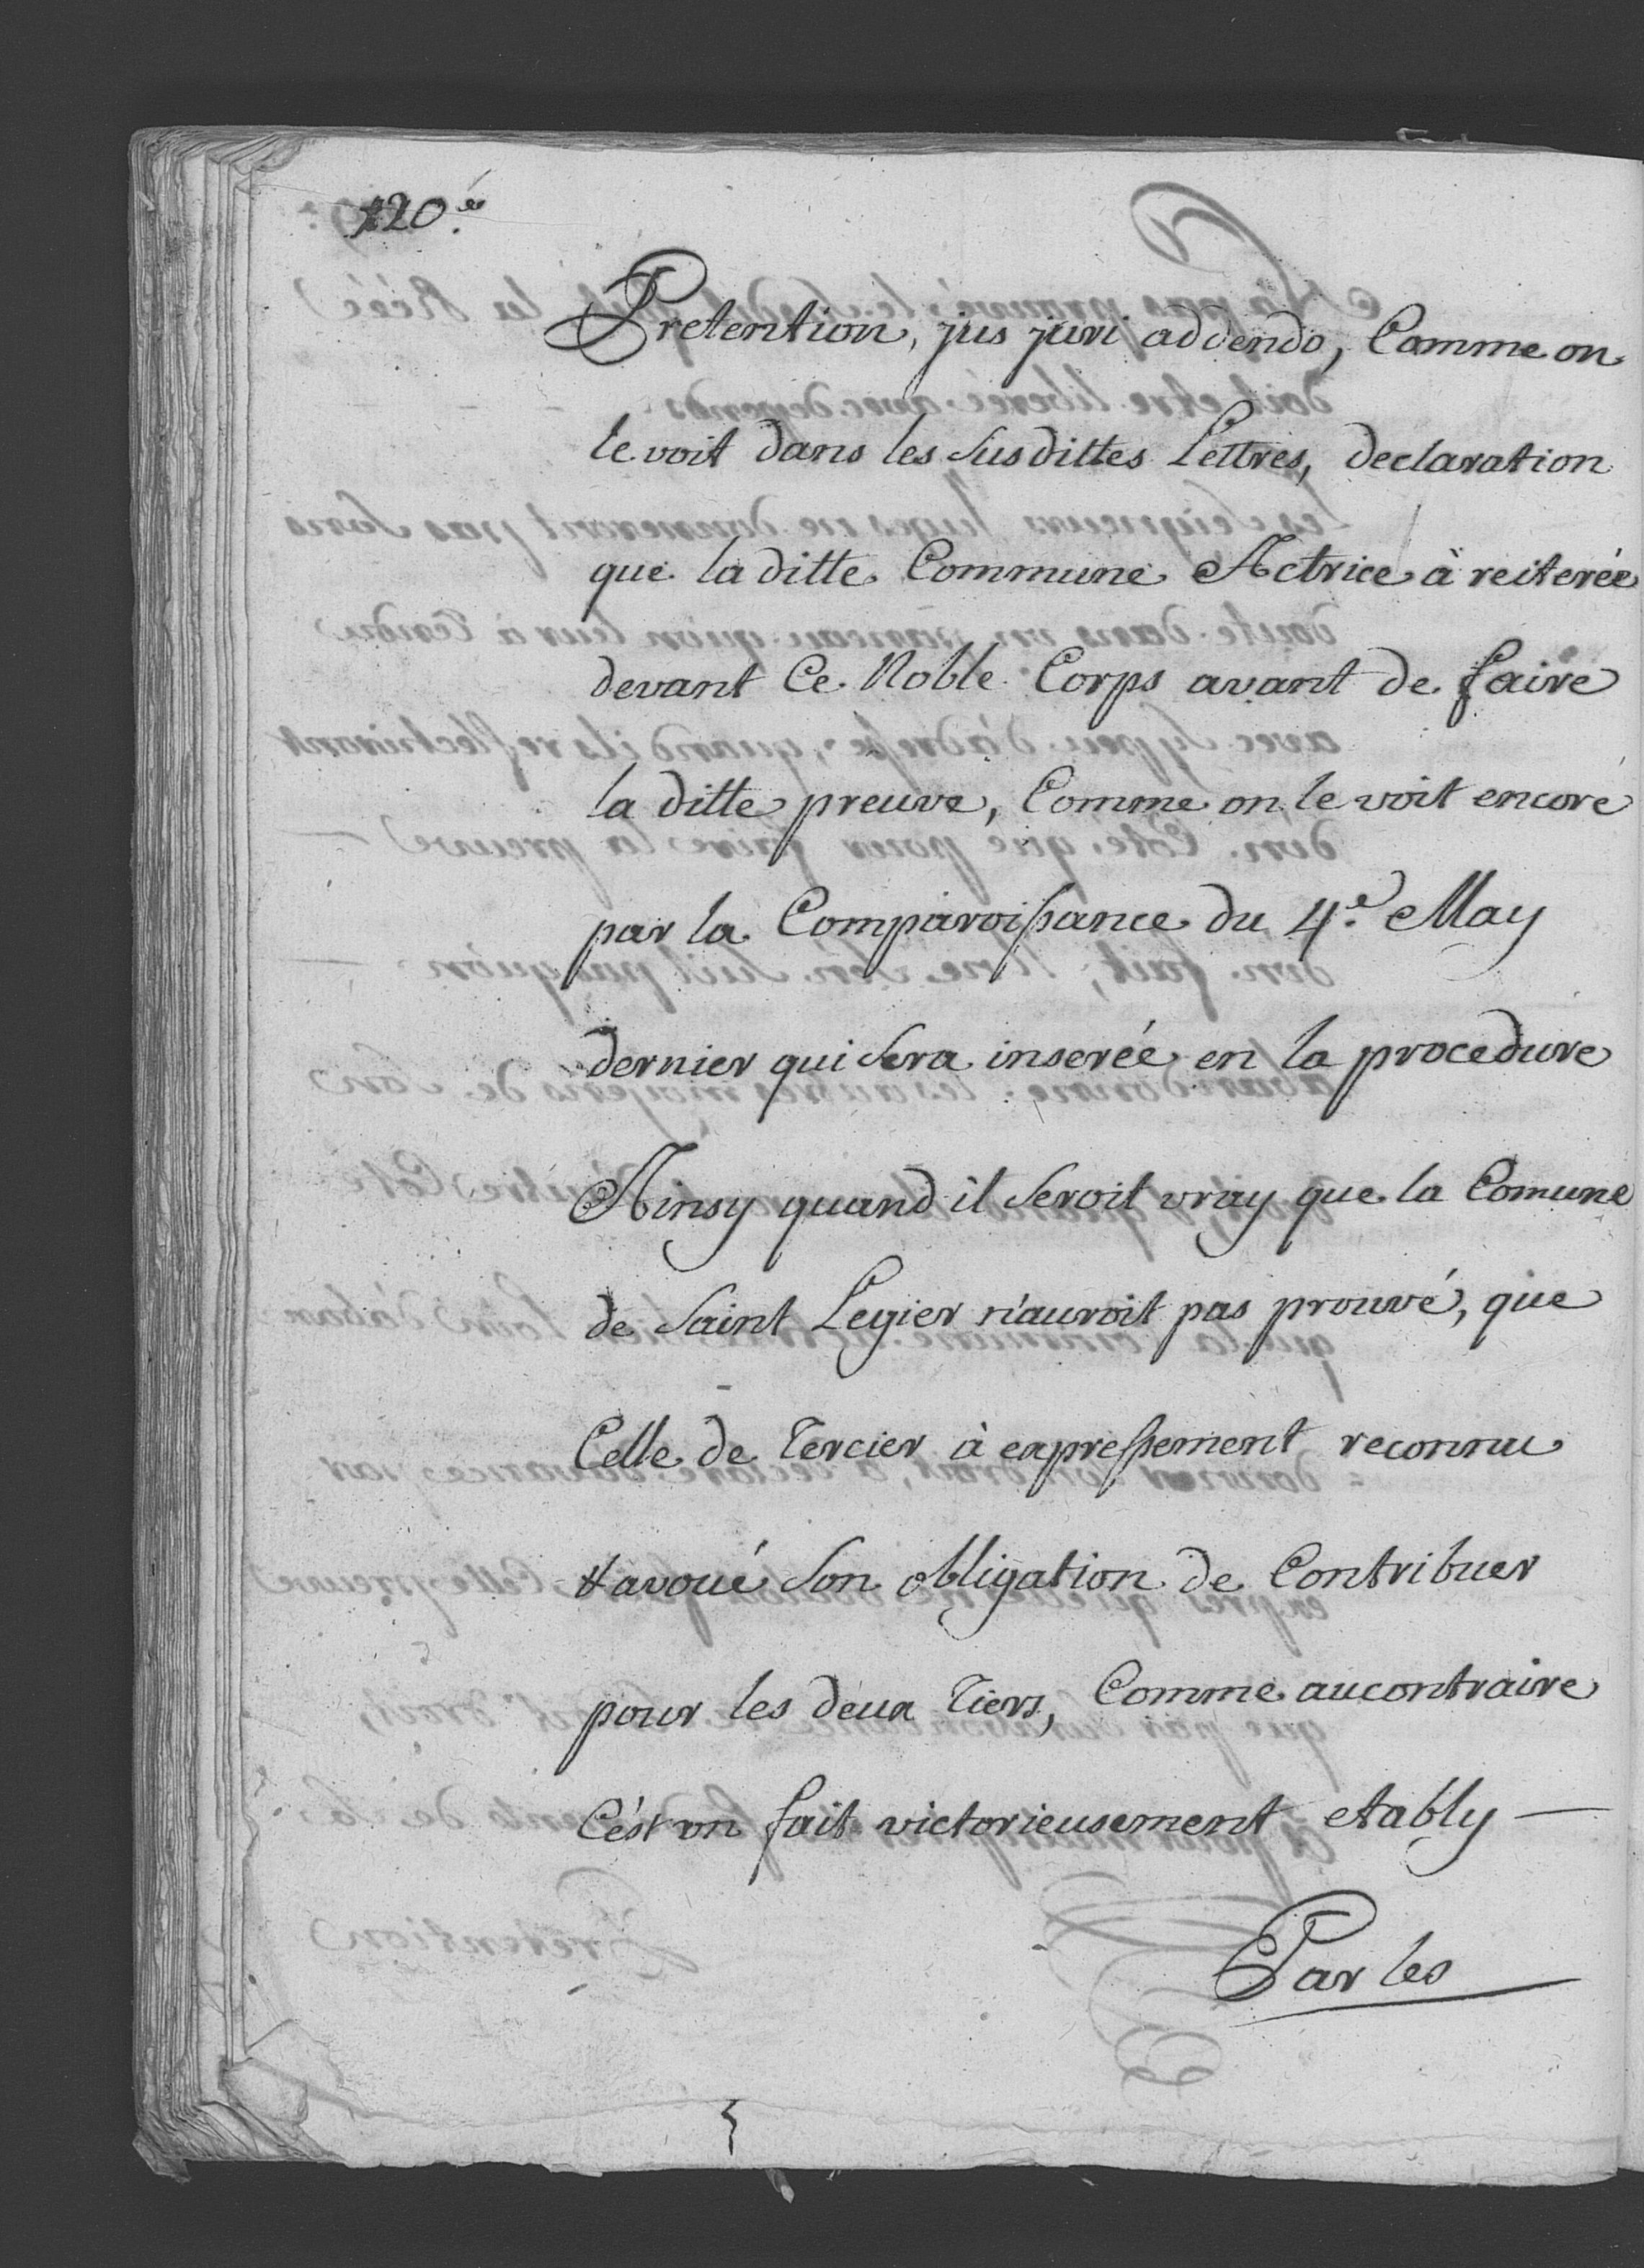 120.e
Pretention, jus juri addendo, Comme on
le voit dans les susdittes Lettres, declaration
que la ditte Commune Actrice à reiterée
devant Ce Noble Corps avant de faire
la ditte preuve, Comme on le voit encore
par la Comparoissance du 4.e May
dernier qui sera inserée en la procedure
Ainsy quand il seroit vray que la Comune
de Saint Legier n'auroit pas prouvé, que
Celle de Tercier à expressement reconnu
& avoué Son obligation de Contribuer
pour les deux Tiers, Comme aucontraire
C'est un fait victorieusement etably —
Par les